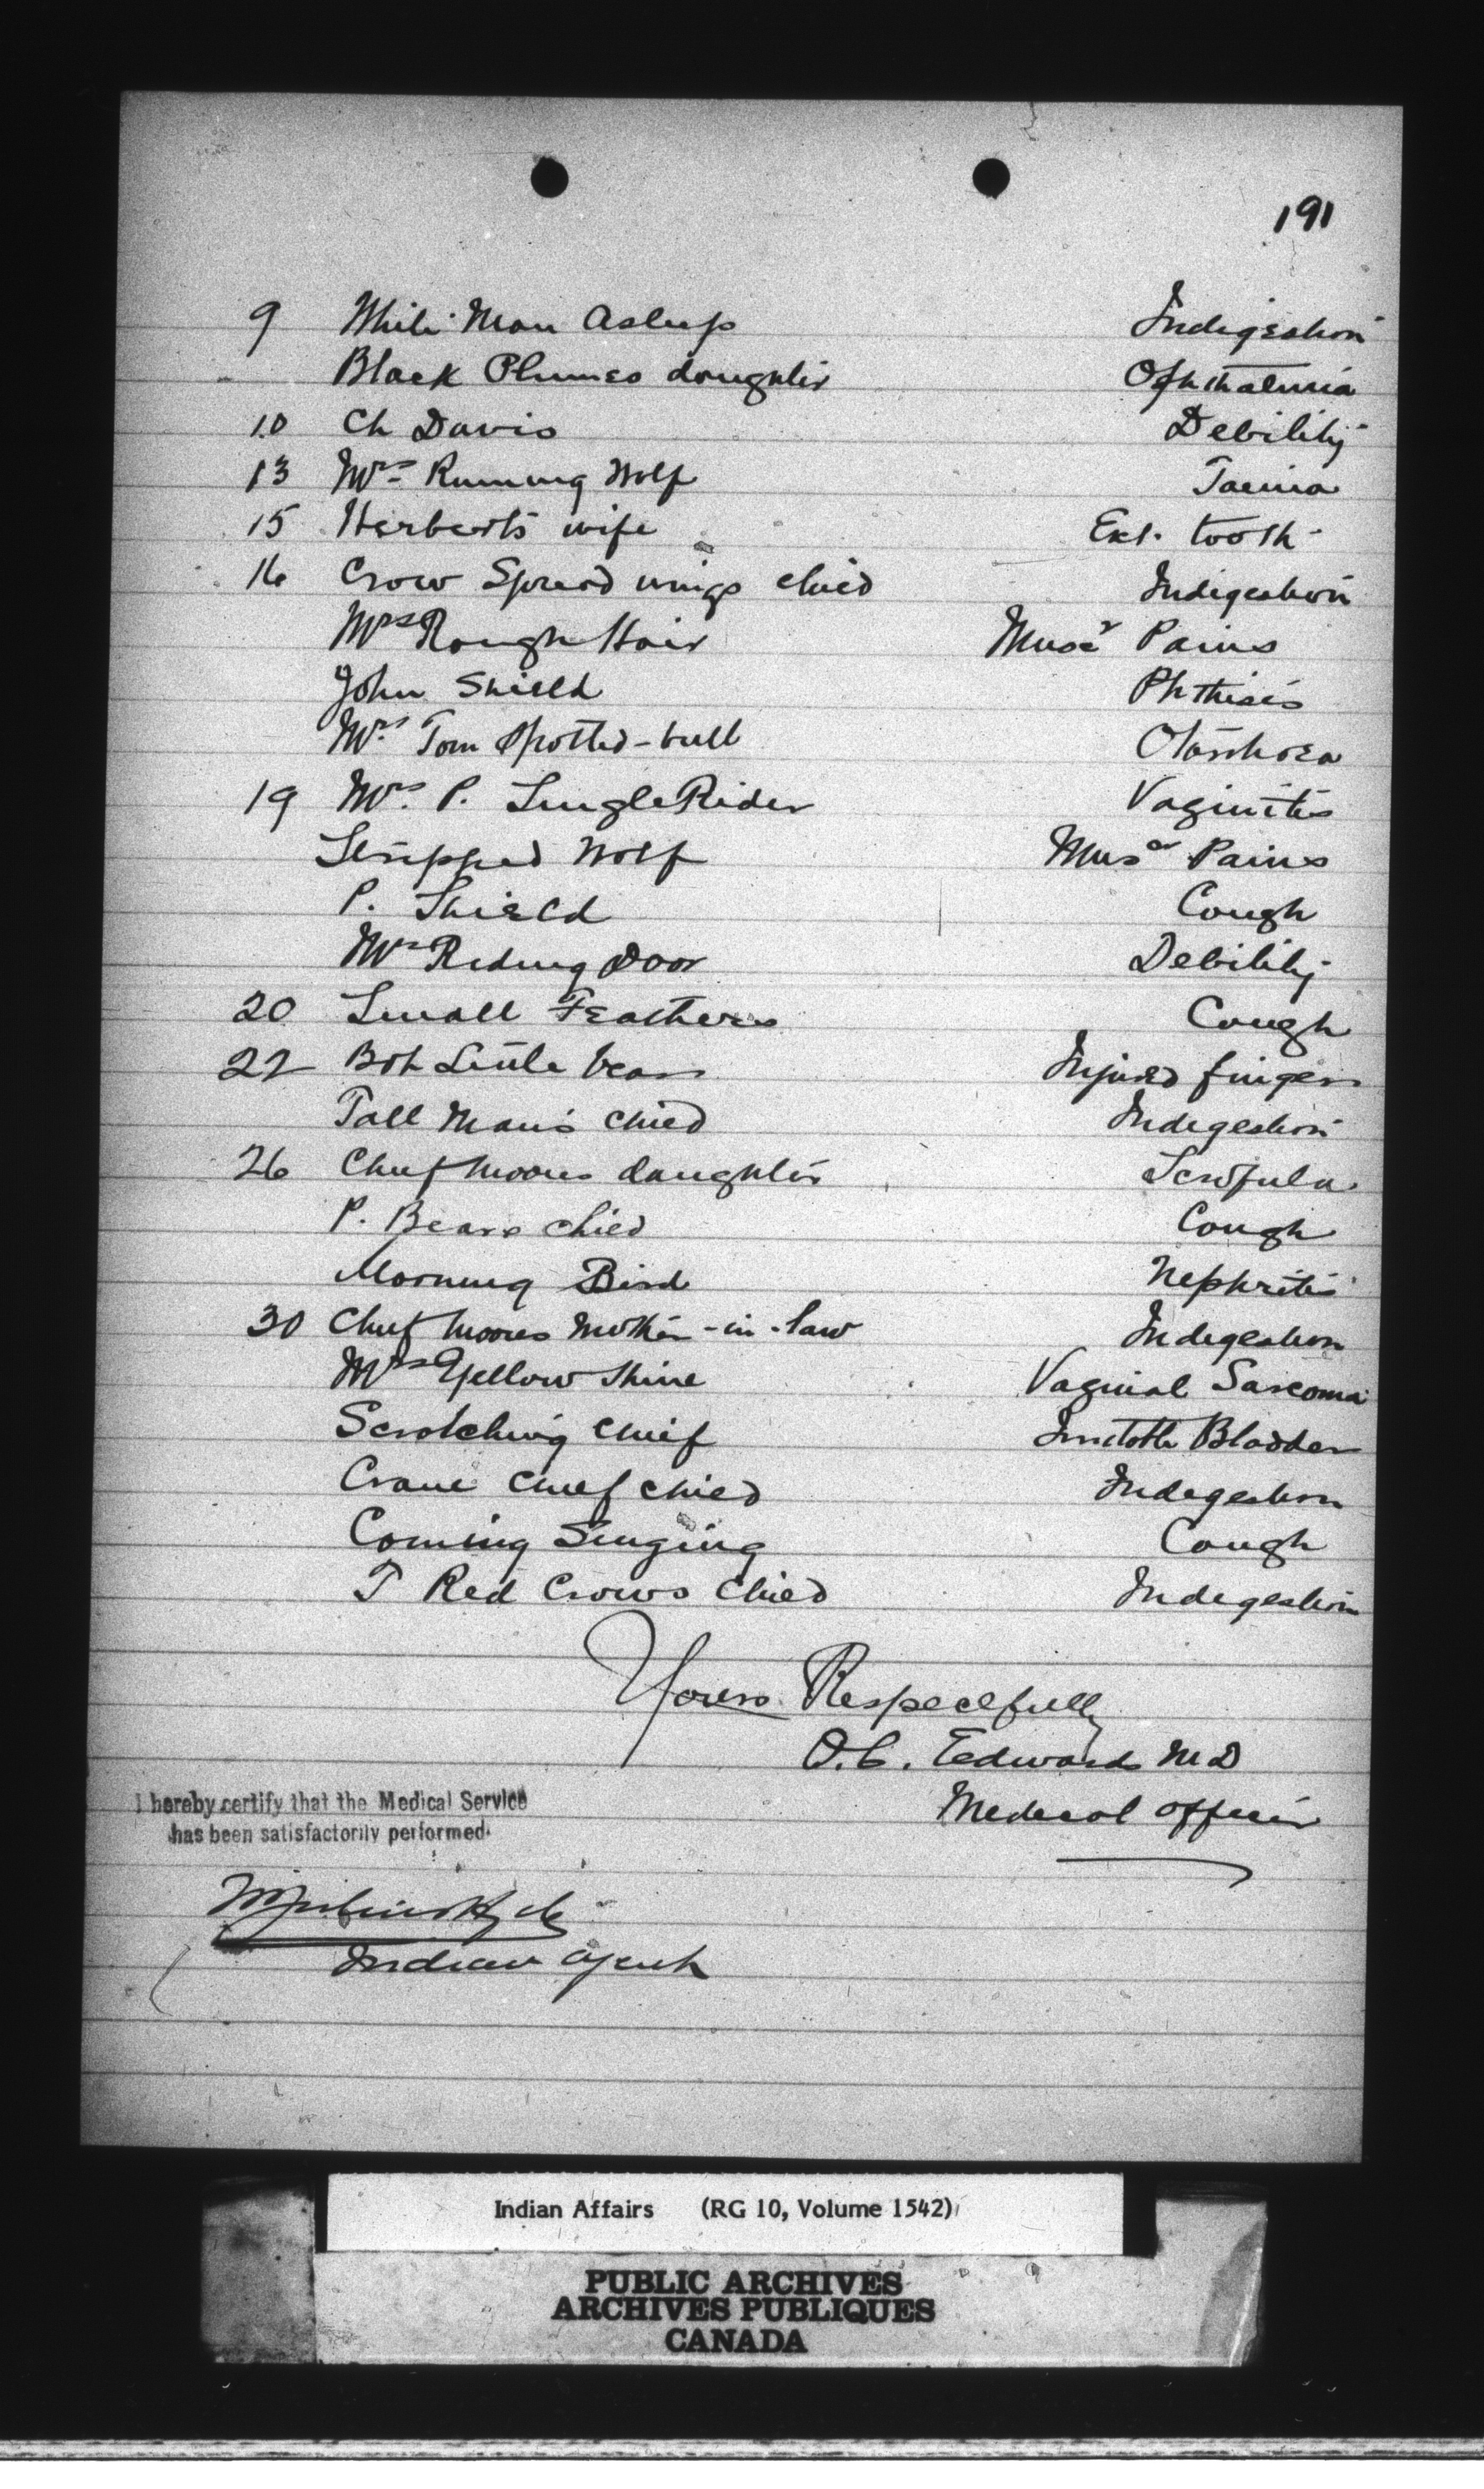 191
9 White Man Asleep Indigestion
Black Plumes daughter Ophthalmia
10 Ch Davis Debility
13 Mrs Running Wolf Taenia
15 Herberts wife Ext. tooth
16 Crow Spread wings child Indigestion
Mrs Rough Hair Muscr Pains
John Shield Phthisis
Mrs Tom Spotted-bull Otorrhoea
19 Mrs. P. Single Rider Vaginitis
Stripped Wolf Musr Pains
P. Shield Cough
Mrs Riding Door Debility
20 Small Feathers Cough
22 Bob Little bear Injured finger
Tall Man's child Indigestion
26 Chief Moons daughter Scrofula
P. Bears child Cough
Morning Bird Nephritis
30 Chief Moons Mother-in-law Indigestion
Mrs Yellow Shine Vaginal Sarcoma
Scratching Chief Bladder
Crane Chief child Indigestion
Coming Singing Cough
T Red Crows Child Indigestion
Yours Respectfully
O.C. Edwards MD
Medical officer
I hereby certify that the Medical Service
has been satisfactorily performed.
Indian Agent
Indian Affairs (RG 10, Volume 1542)
PUBLIC ARCHIVES
ARCHIVES PUBLIQUES
CANADA